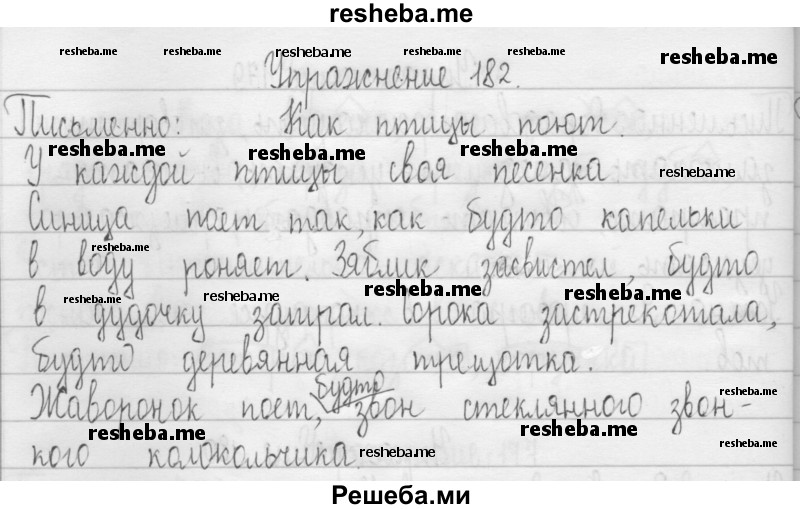 resheba.me
resheba.me resheba.me resheba.me resheba.me resheba.me resheba.me
Упражнение 182.
Письменно: Как птицы поют.
resheba.me resheba.me resheba.me
У каждой птицы своя песенка resheba.me
Синица поет так, как будто капельки
resheba.me
в воду роняет. Зяблик засвистел, будто
resheba.me resheba.me resheba.me resheba.me
в дудочку заиграл. Сорока застрекотала,
будто деревянная трещотка.
будто
Жаворонок поет, звон стеклянного звон-
resheba.me resheba.me resheba.me
кого колокольчика. resheba.me resheba.me
Решеба.ми